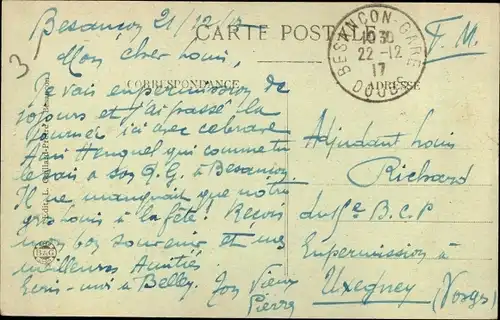 Besançon 21/12/17
CARTE POSTALE
F. M.
BESANÇON-GARE
10 30
22-12
17
DOUBS
3
Mon cher Louis,
CORRESPONDANCE
ADRESSE
Je vais en permission de
jours et j'ai passé la
journée ici avec ce brave
Ami Henquel qui comme tu
le sais a son Q.G. à Besançon
Il ne manquait que notre
gros Louis à la fête! Reçois
mon bon souvenir et mes
meilleures Amitiés
Ecris-moi à Belley. Ton Vieux
Pierre
Adjudant Louis
Richard
du B.C.P
En permission à
Uxegney (Vosges)
B&G